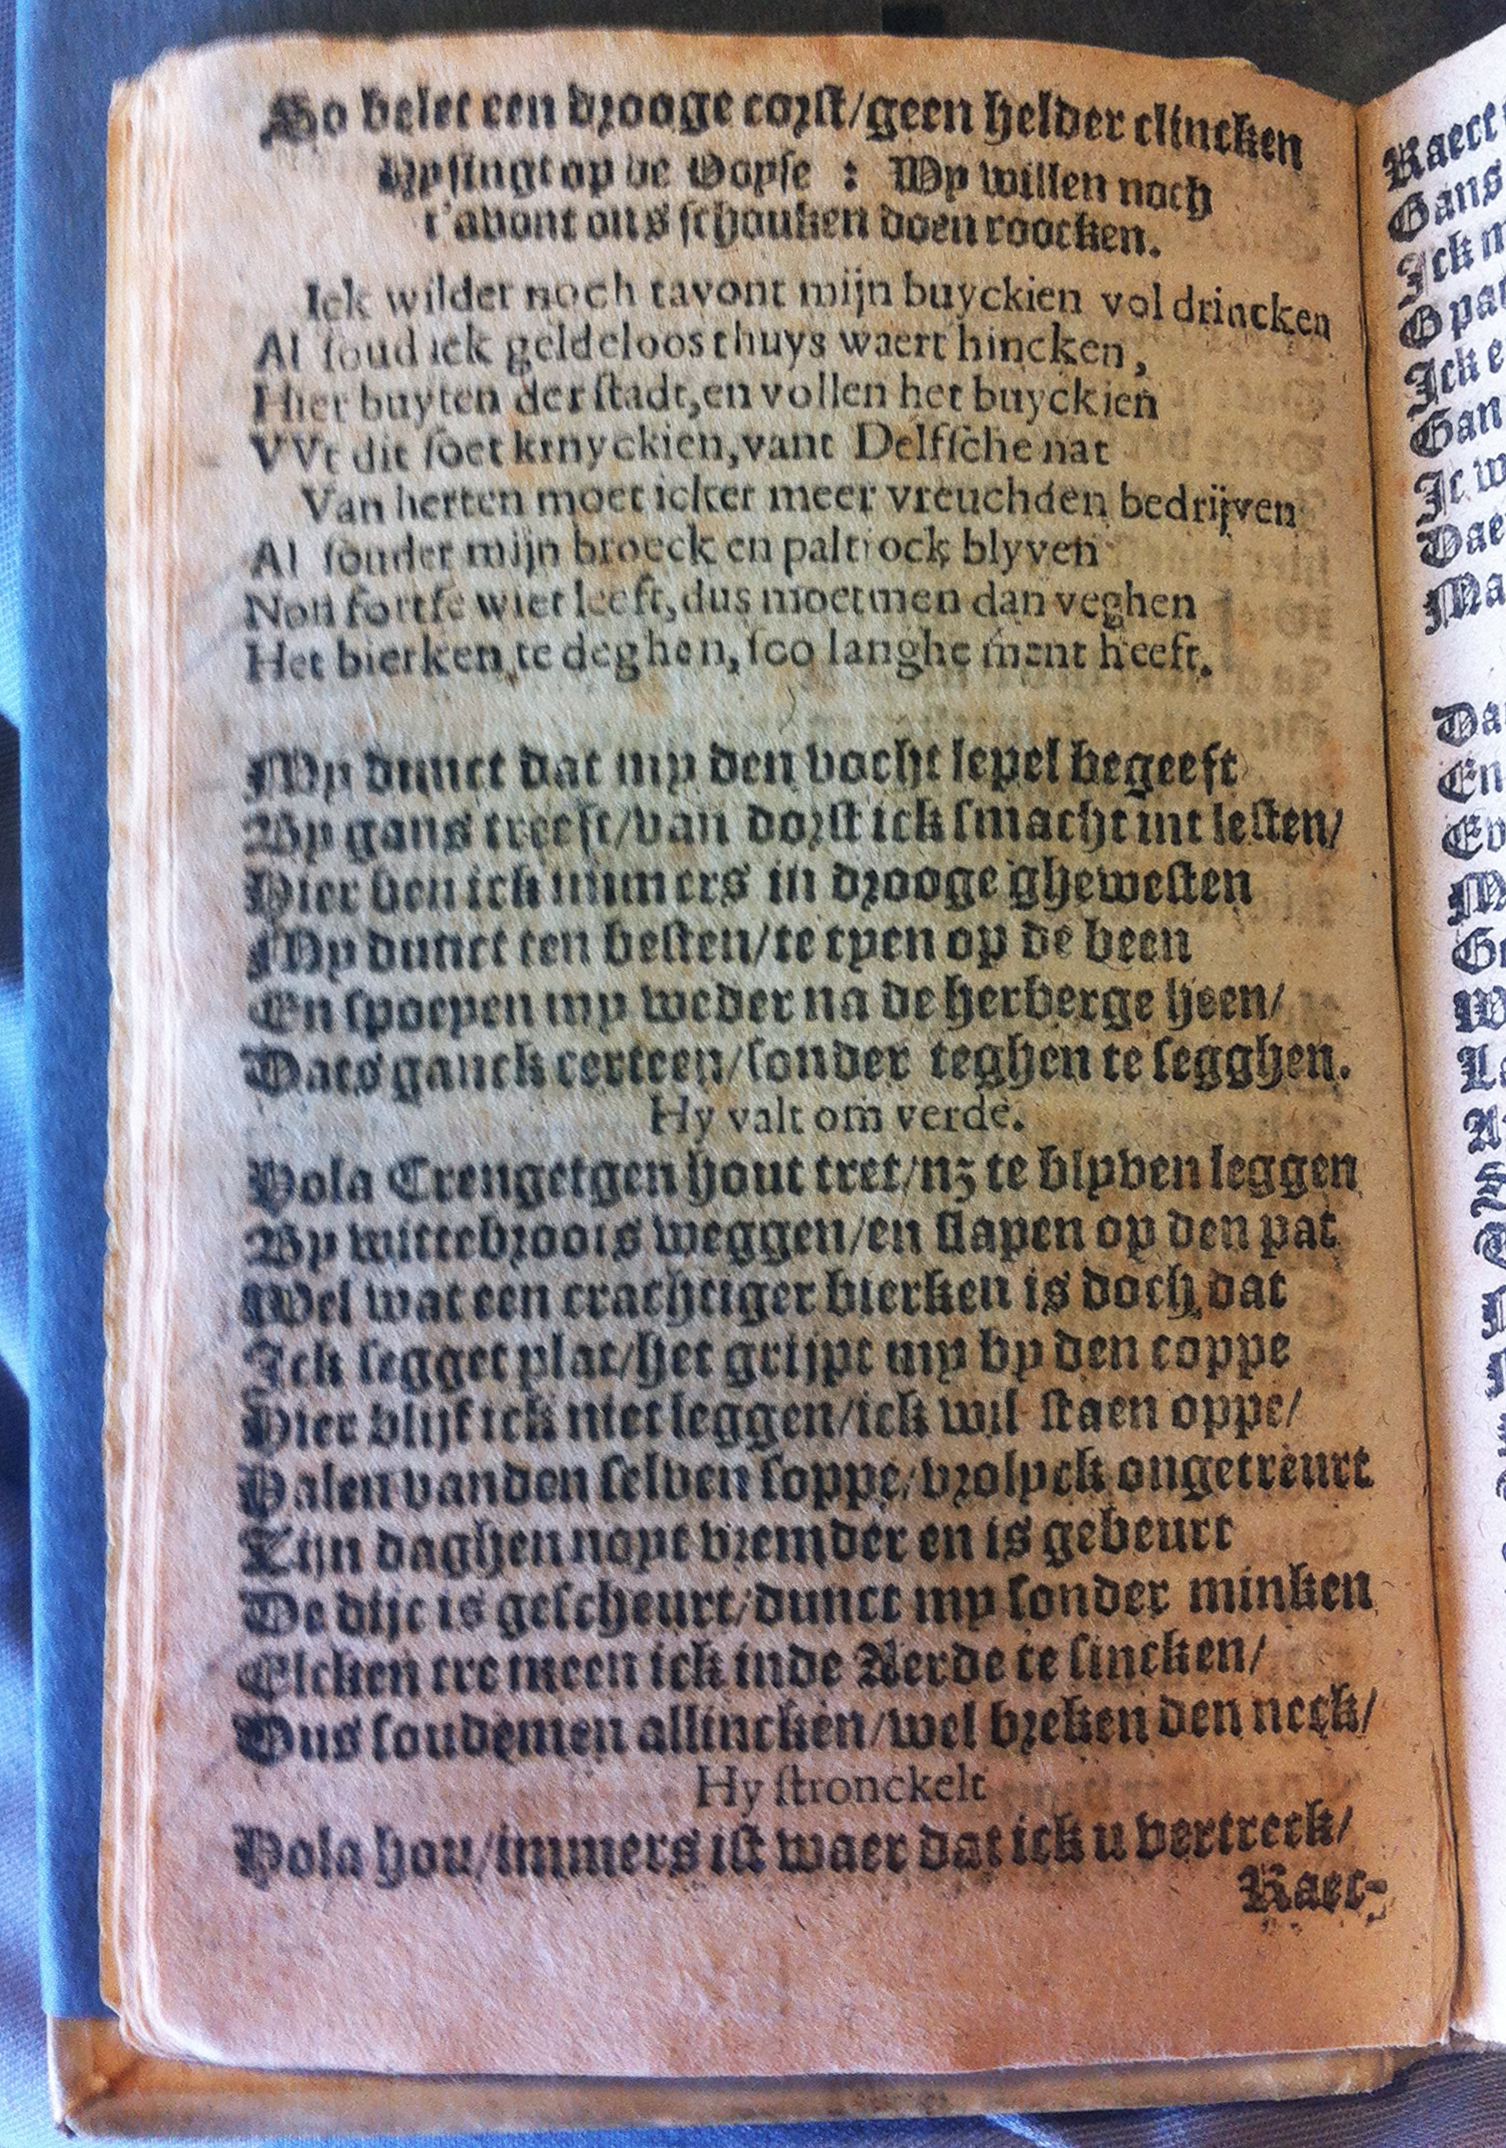 So belet een drooge corst/geen helder clincken
Hy singt op de Voyse : Wy willen noch
t'avont ons schouken doen roocken.
Ick wilder noch tavont mijn buyckien vol drincken
Al soud ick geldeloos thuys waert hincken,
Hier buyten der stadt, en vollen het buyckien
VVt dit soet krnyckien, vant Delfsche nat
Van herten moet icker meer vreuchden bedrijven
Al souder mijn broeck en paltrock blyven
Non fortse wiet leeft, dus moetmen dan veghen
Het bierken te deghen, soo langhe ment heeft.
My dunct dat my den vocht lepel begeeft
By gans treeft/van dorst ick smacht int lesten/
Hier ben ick immers in drooge ghewesten
My dunct ten besten/te tyen op de been
En spoeyen my weder na de herberge heen/
Dats ganck certeen/sonder teghen te segghen.
Hy valt om verde.
Hola Crengetgen hout tret/nz te blyven leggen
By wittebroots weggen/en slapen op den pat
Wel wat een crachtiger bierken is doch dat
Ick segget plat/het grijpt my by den coppe
Hier blijf ick niet leggen/ick wil staen oppe/
Halen vanden selven soppe/vrolyck ongetreurt
Tijn daghen noyt vremder en is gebeurt
De dijc is gescheurt/dunct my sonder minken
Elcken tre meen ick inde Aerde te sincken/
Dus soudemen allincken/wel breken den neck/
Hy stronckelt
Hola hou/immers ist waer dat ick u vertreck/
Raec-
Raect
Gans
Ick m
G pat
Ick e
Gan
Ic w
Daer
Ma
Da
En
M
W